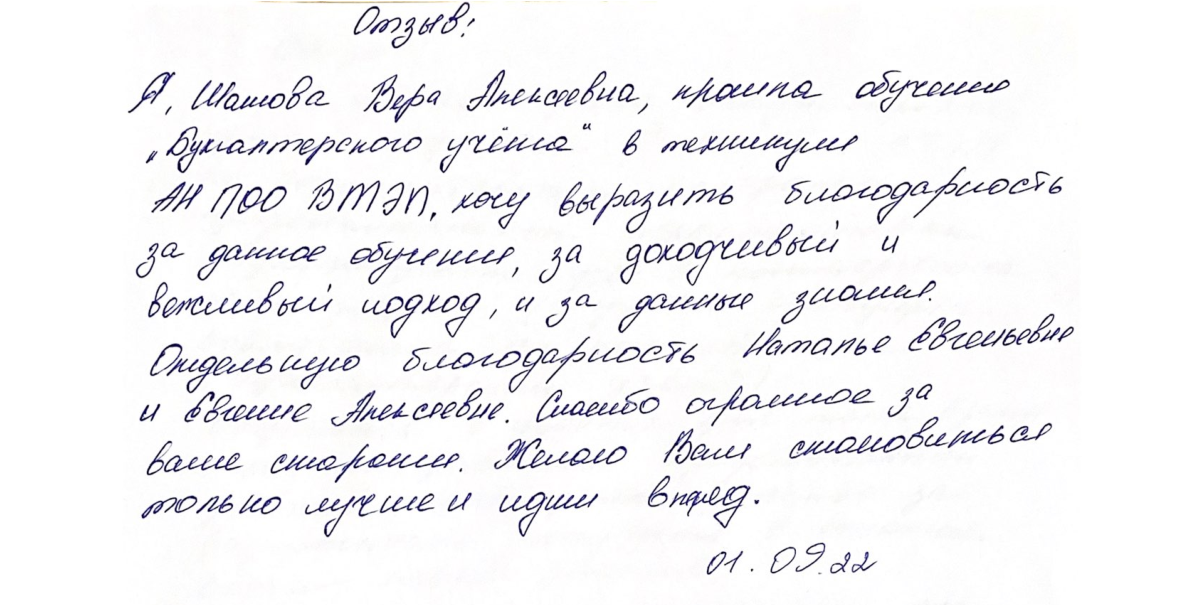 Отзыв:
Я, Шатова Вера Алексеевна, прошла обучение
„Бухгалтерского учёта“ в техникуме
АН ПОО ВТЭП, хочу выразить благодарность
за данное обучение, за доходчивый и
вежливый подход, и за данные знания.
Отдельную благодарность Наталье Евгеньевне
и Евгение Алексеевне. Спасибо огромное за
ваше старание. Желаю Вам становиться
только лучше и идти вперёд.
01.09.22